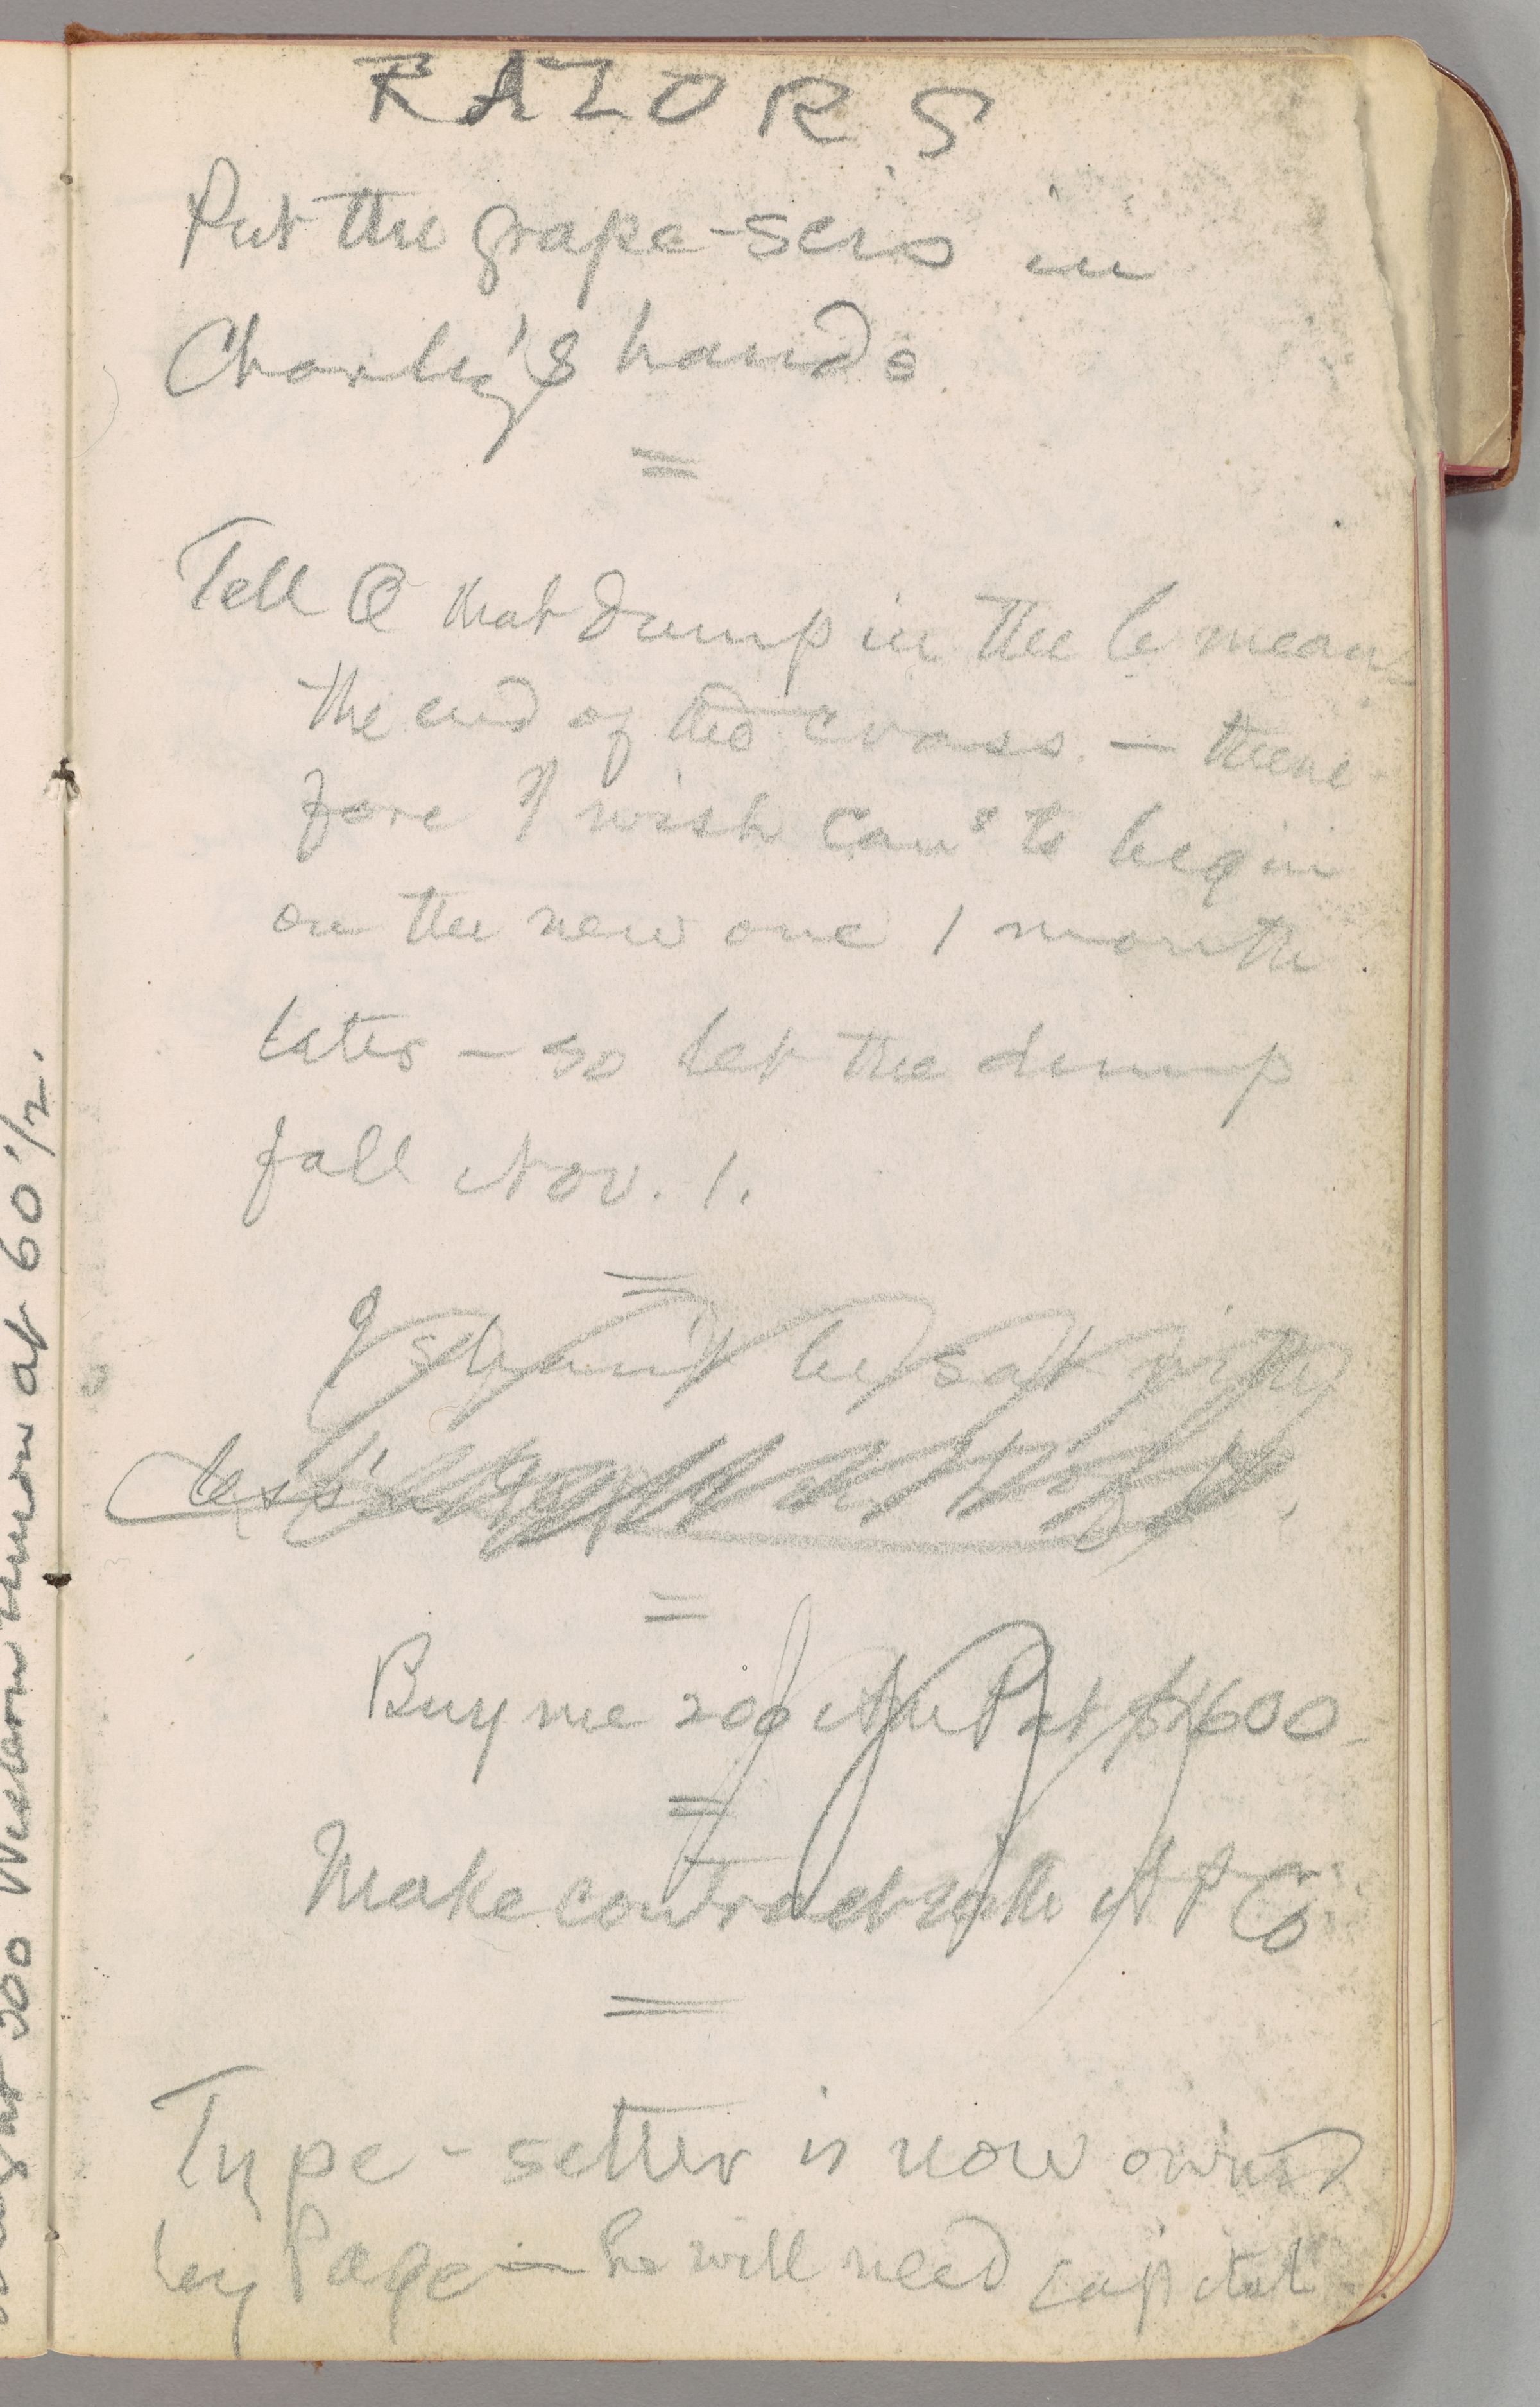 RAZORS
Put the grape-scis in
Charley's hands
=
Tell O that dump in the C means
the end of the Cvass. — there-
fore I wish Can's to begin
on the new one 1 month
later — so let the dump
fall Nov. 1.
=
I shan't be sat with
less
=
Buy me 200 at $1600
=
Make contract with A P Co
=
Type-setter is now owned
by Paige — he will need capital.
300 Western Union at 60 1/2.